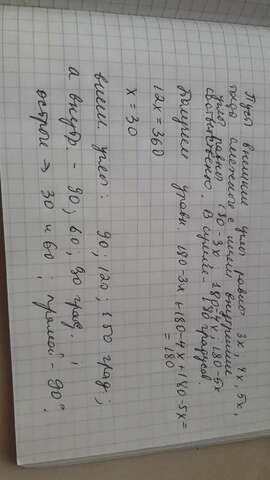 Пусть внешние углы равны 3x, 4x, 5x,
тогда смежные с ними внутренние
углы равны 180-3x, 180-4x, 180-5x
соответственно. В сумме - 180 градусов.
Получим уравн. 180-3x+180-4x+180-5x=
=180
12x=360
x=30
внешн. углы: 90; 120; 150 град;
а внутр. - 90; 60; 30 град. ;
острые ⇒ 30 и 60; прямой - 90°.